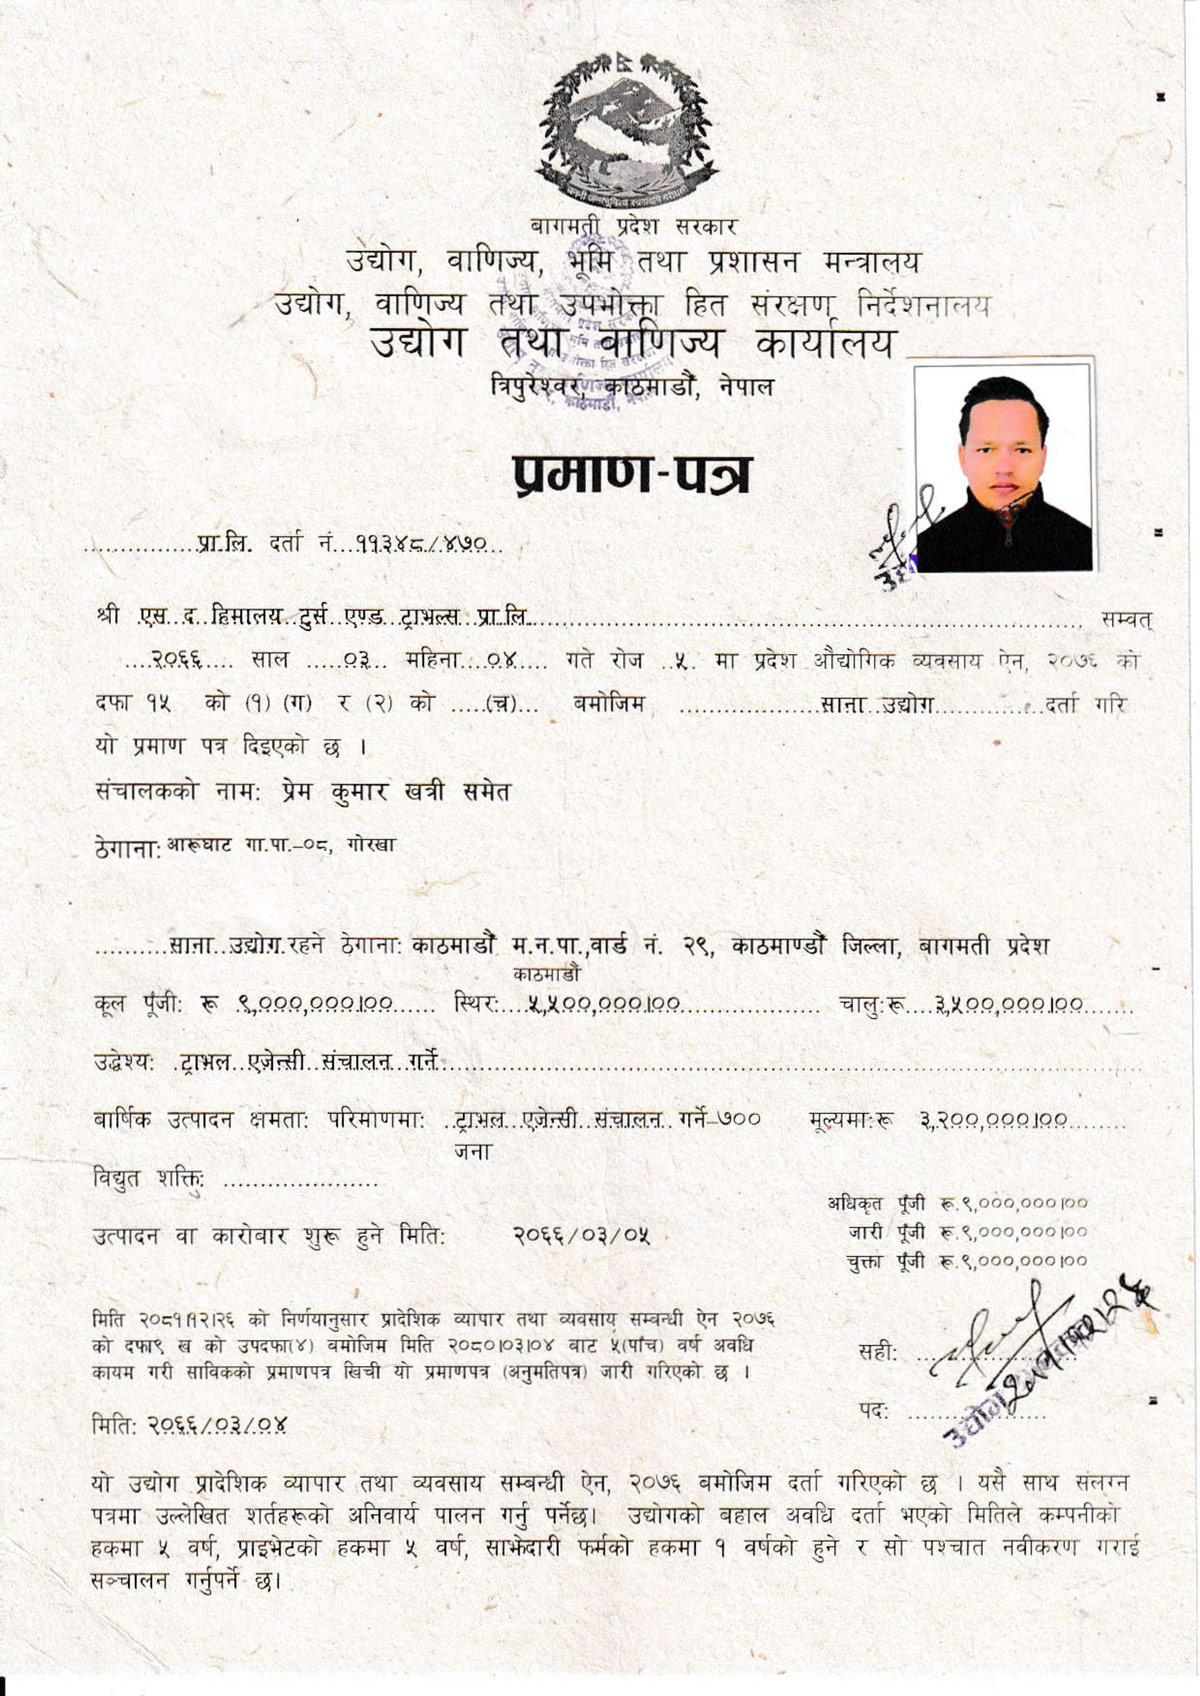 बागमती प्रदेश सरकार
उद्योग, वाणिज्य, भूमि तथा प्रशासन मन्त्रालय
उद्योग, वाणिज्य तथा उपभोक्ता हित संरक्षण निर्देशनालय
उद्योग तथा वाणिज्य कार्यालय
त्रिपुरेश्वर, काठमाडौं, नेपाल
प्रमाण-पत्र
..................प्रा.लि. दर्ता नं...११३४८/४७०..
श्री एस द हिमालय टुर्स एण्ड ट्राभल्स प्रा.लि............ सम्वत्
....२०६६.... साल .....०३... महिना..०४.... गते रोज ..५. मा प्रदेश औद्योगिक व्यवसाय ऐन, २०७६ को
दफा १५ को (१) (ग) र (२) को .....(च)... बमोजिम ..................साना उद्योग..............दर्ता गरि
यो प्रमाण पत्र दिइएको छ ।
संचालकको नाम: प्रेम कुमार खत्री समेत
ठेगाना: आरूघाट गा.पा.-०८, गोरखा
..........साना उद्योग रहने ठेगाना: काठमाडौं म.न.पा.,वार्ड नं. २९, काठमाण्डौं जिल्ला, बागमती प्रदेश
काठमाडौं
कूल पूंजी: रू ९,०००,०००।००...... स्थिर: ५,५००,०००।००.................. चालु:रू....३,५००,०००।००.......
उद्धेश्य: ट्राभल एजेन्सी संचालन गर्ने............
बार्षिक उत्पादन क्षमता: परिमाणमा: ..ट्राभल एजेन्सी संचालन गर्ने-७०० मूल्यमा:रू ३,२००,०००।००........
जना
विद्युत शक्ति: .....................
अधिकृत पूँजी रू.९,०००,०००।००
जारी पूँजी रू.९,०००,०००।००
उत्पादन वा कारोवार शुरू हुने मिति: २०६६/०३/०५
चुक्ता पूँजी रू.९,०००,०००।००
मिति २०८१।१२।२६ को निर्णयानुसार प्रादेशिक व्यापार तथा व्यवसाय सम्बन्धी ऐन २०७६
को दफा९ ख को उपदफा(४) बमोजिम मिति २०८०।०३।०४ बाट ५(पाँच) वर्ष अवधि
कायम गरी साविकको प्रमाणपत्र खिची यो प्रमाणपत्र (अनुमतिपत्र) जारी गरिएको छ ।
सही: ....................
पद: ....................
मिति: २०६६/०३/०४
यो उद्योग प्रादेशिक व्यापार तथा व्यवसाय सम्बन्धी ऐन, २०७६ बमोजिम दर्ता गरिएको छ । यसै साथ संलग्न
पत्रमा उल्लेखित शर्तहरूको अनिवार्य पालन गर्नु पर्नेछ। उद्योगको बहाल अवधि दर्ता भएको मितिले कम्पनीको
हकमा ५ वर्ष, प्राइभेटको हकमा ५ वर्ष, साझेदारी फर्मको हकमा १ वर्षको हुने र सो पश्चात नवीकरण गराई
सञ्चालन गर्नुपर्ने छ।